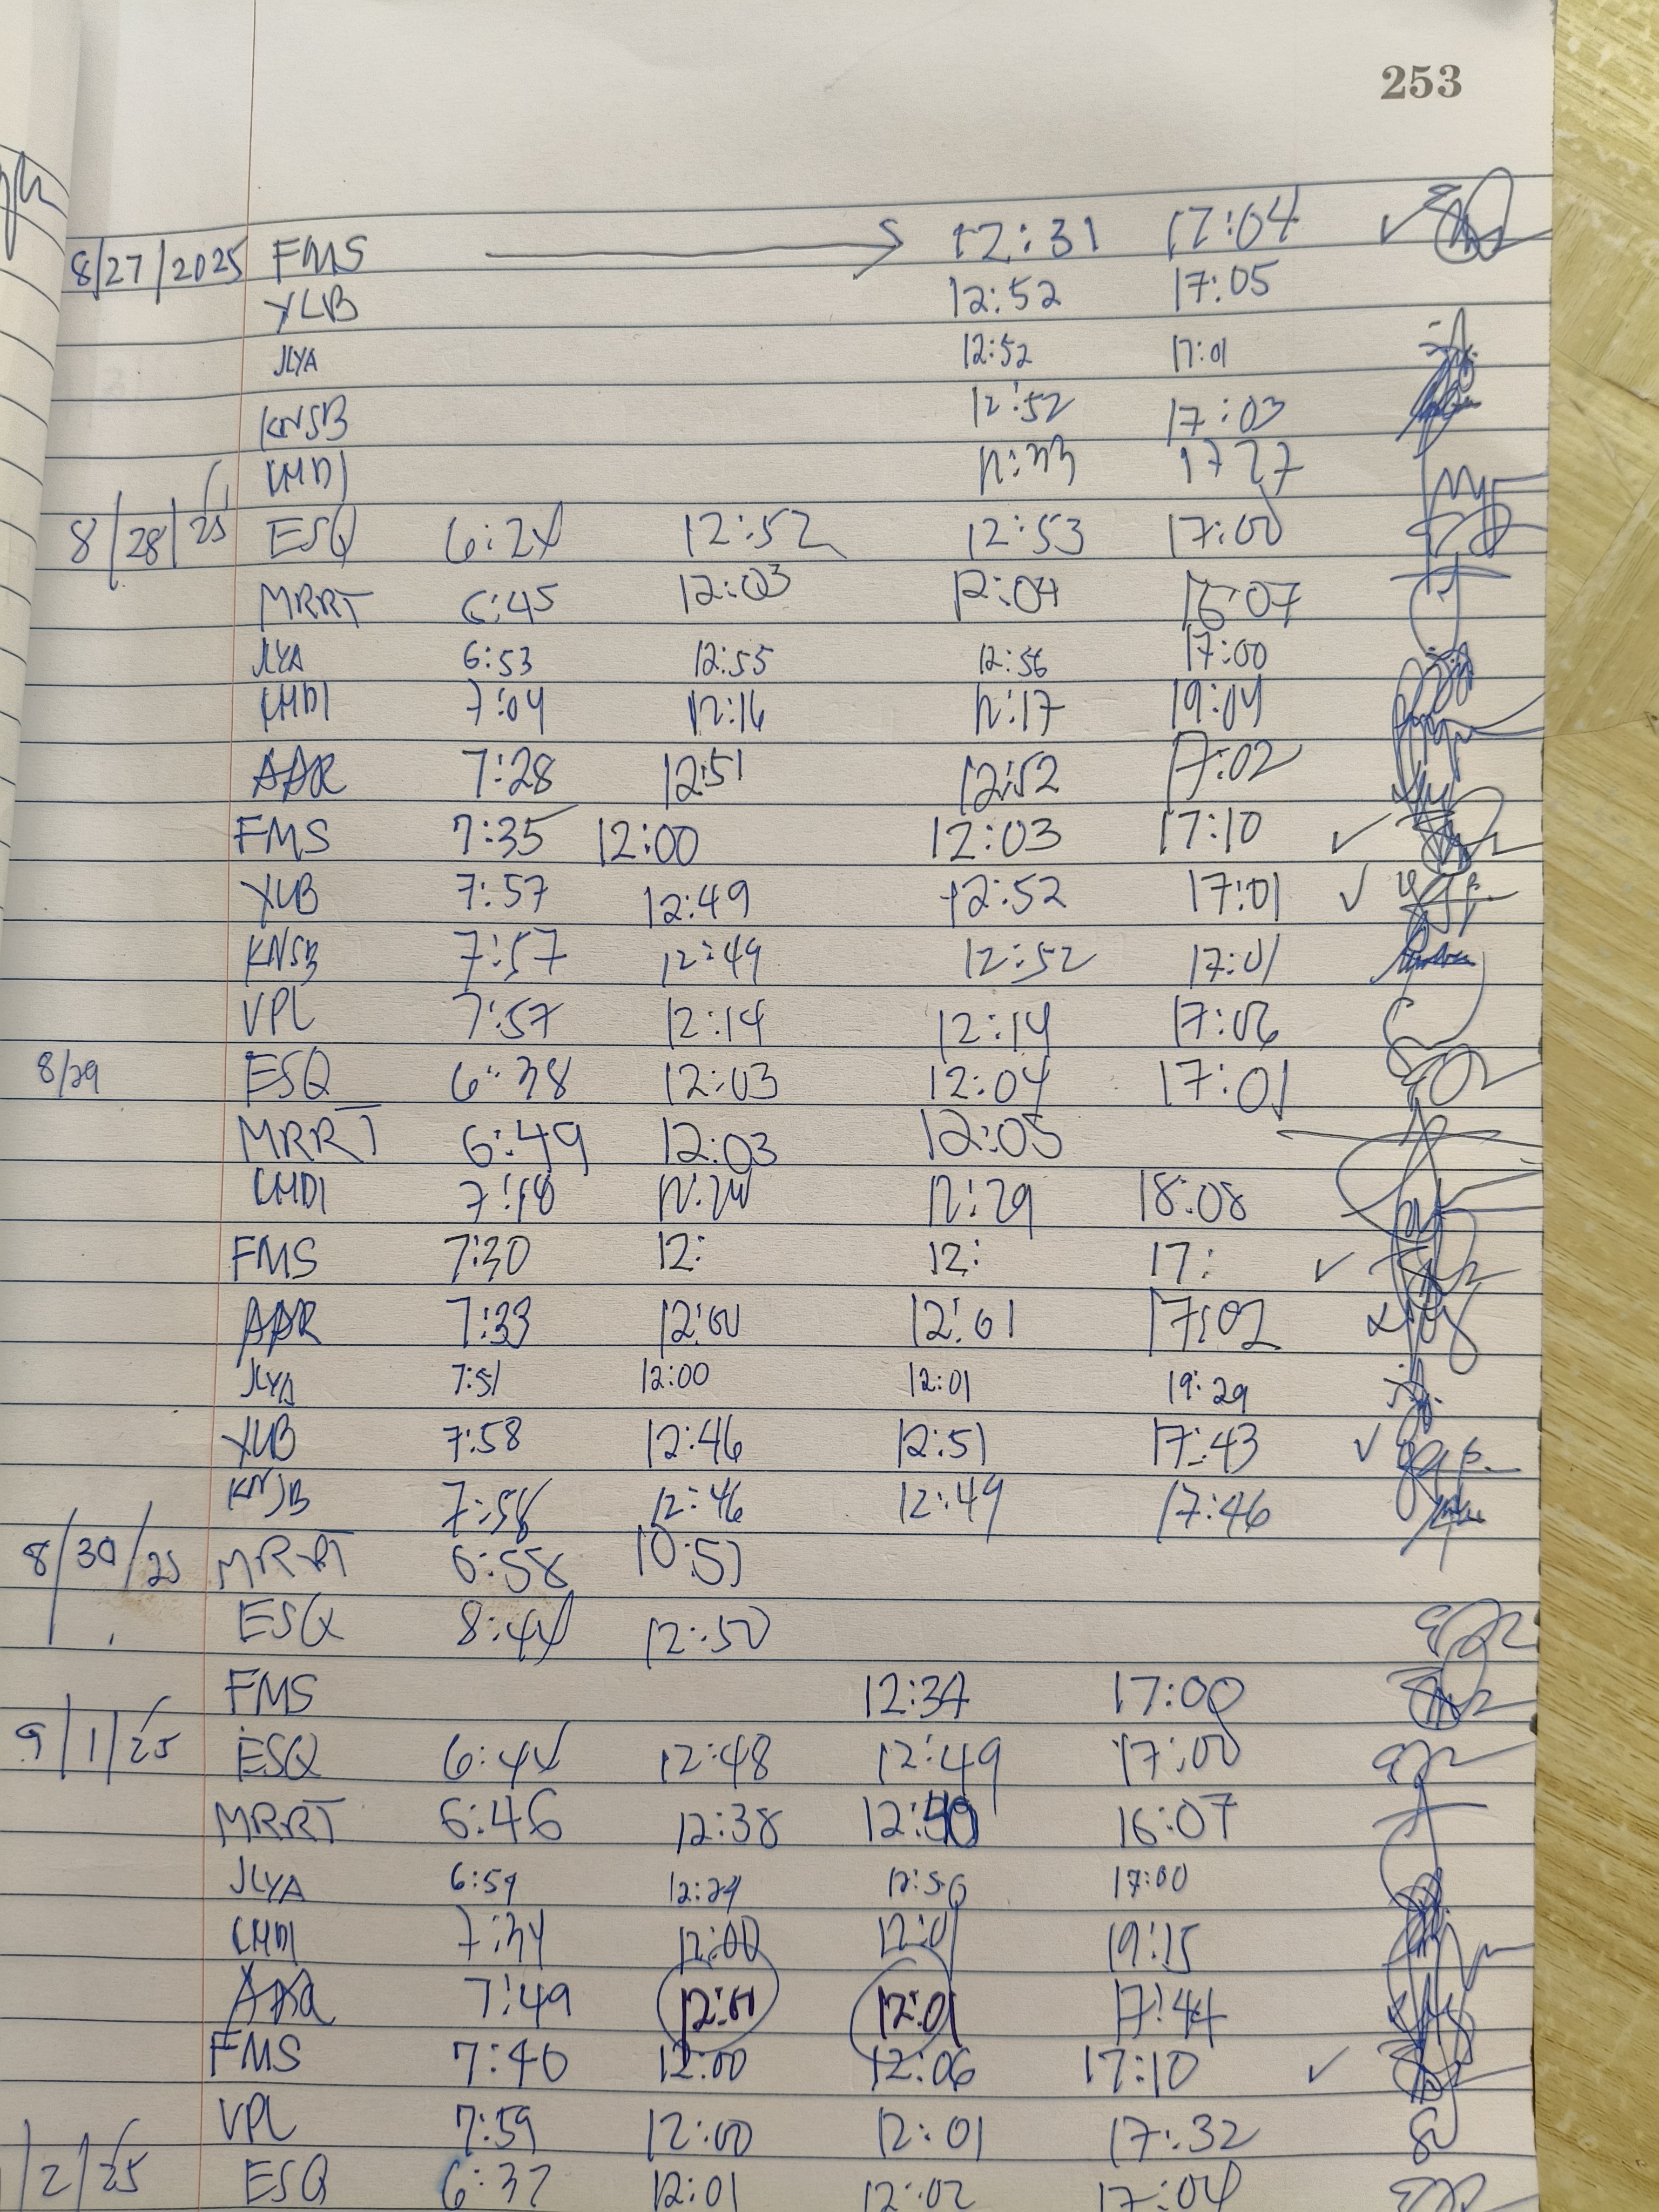 253
8/27/2025 FMS 12:31 17:04 ✓
YLB 12:52 17:05
JLYA 12:52 17:01
KNSB 12:52 17:03
LMDI 12:33 17 27
8/28/25 ESQ 6:24 12:52 12:53 17:00
MRRT 6:45 12:03 12:04 16:07
JLYA 6:53 12:55 12:56 17:00
LMDI 7:04 12:16 12:17 19:04
AAR 7:28 12:51 12:52 17:02
FMS 7:35 12:00 12:03 17:10 ✓
YLB 7:57 12:49 12:52 17:01 ✓
KNSB 7:57 12:49 12:52 17:01
VPL 7:57 12:14 12:14 17:06
8/29 ESQ 6:38 12:03 12:04 17:01
MRRT 6:49 12:03 12:05
LMDI 12:29 18:08
FMS 7:30 12: 12: 17: ✓
AAR 7:33 12:00 12:01 17:02
JLYA 7:51 12:00 12:01 19:29
YLB 7:58 12:46 12:51 17:43 ✓
KNSB 7:58 12:46 12:49 17:46
8/30/25 MRRT 6:58 10:51
ESQ 8:44 12:50
FMS 12:34 17:00
9/1/25 ESQ 6:44 12:48 12:49 17:00
MRRT 6:46 12:38 16:07
JLYA 6:59 17:00
LMDI 7:34 12:00 12:01 19:15
AAR 7:49 12:01 12:01 17:44
FMS 7:40 12:00 12:06 17:10 ✓
VPL 7:59 12:00 12:01 17:32
/2/25 ESQ 6:37 12:01 12:02 17:04